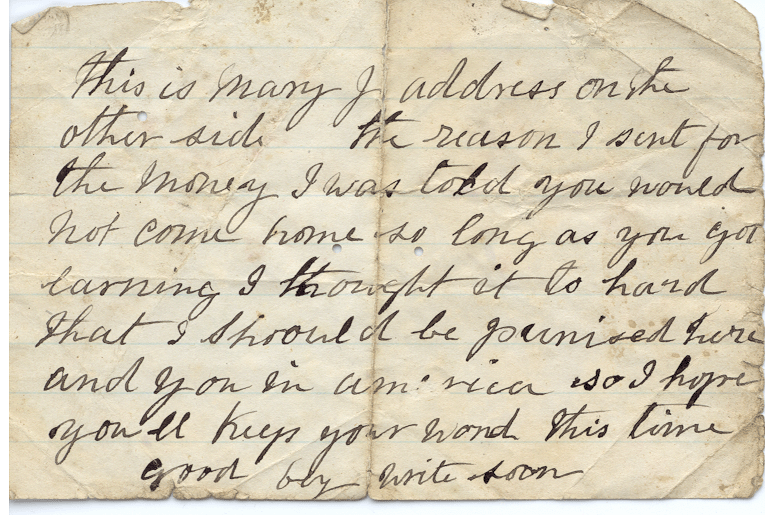 this is Mary J address on the
other side the reason I sent for
the money I was told you would
not come home so long as you got
earning I thought it to hard
that I shoould be punised here
and you in america so I hope
you'll keeps your word this time
good bey write soon